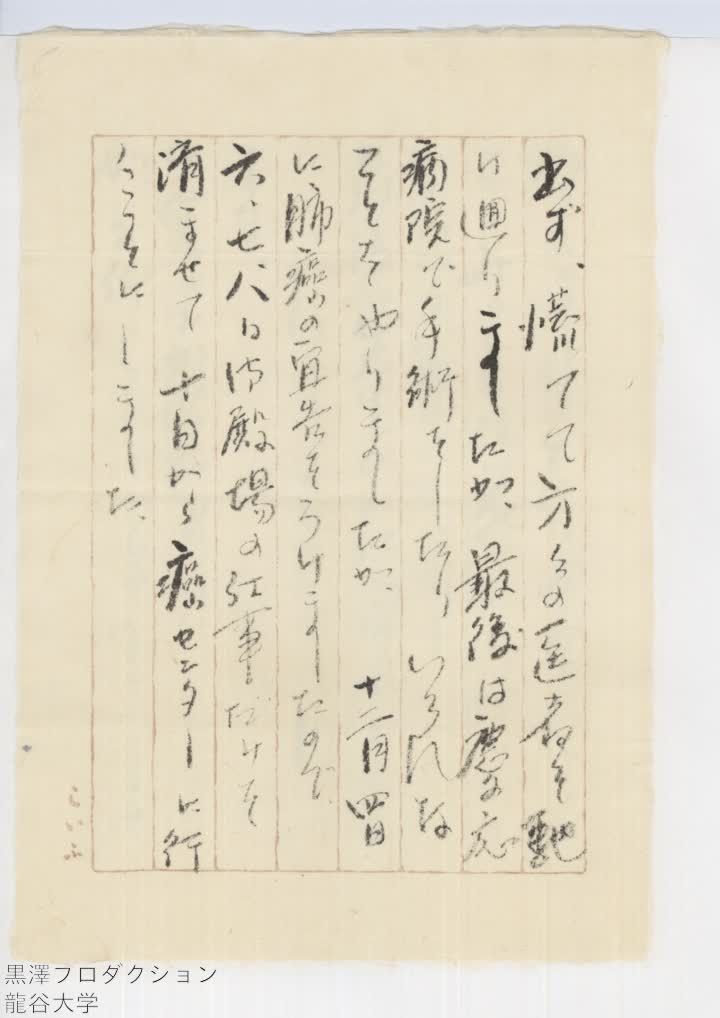 出ず、慌てて方々の医者を馳
け廻りましたが、最後は慶応
病院で手術をしたり いろんな
ことをやりましたが、十二月四日
に肺癌の宣告をうけましたので
六、七、八日御殿場の仕事だけを
済ませて 十日から癌センターに行
くことにしました。
らいふ
黒澤プロダクション
龍谷大学